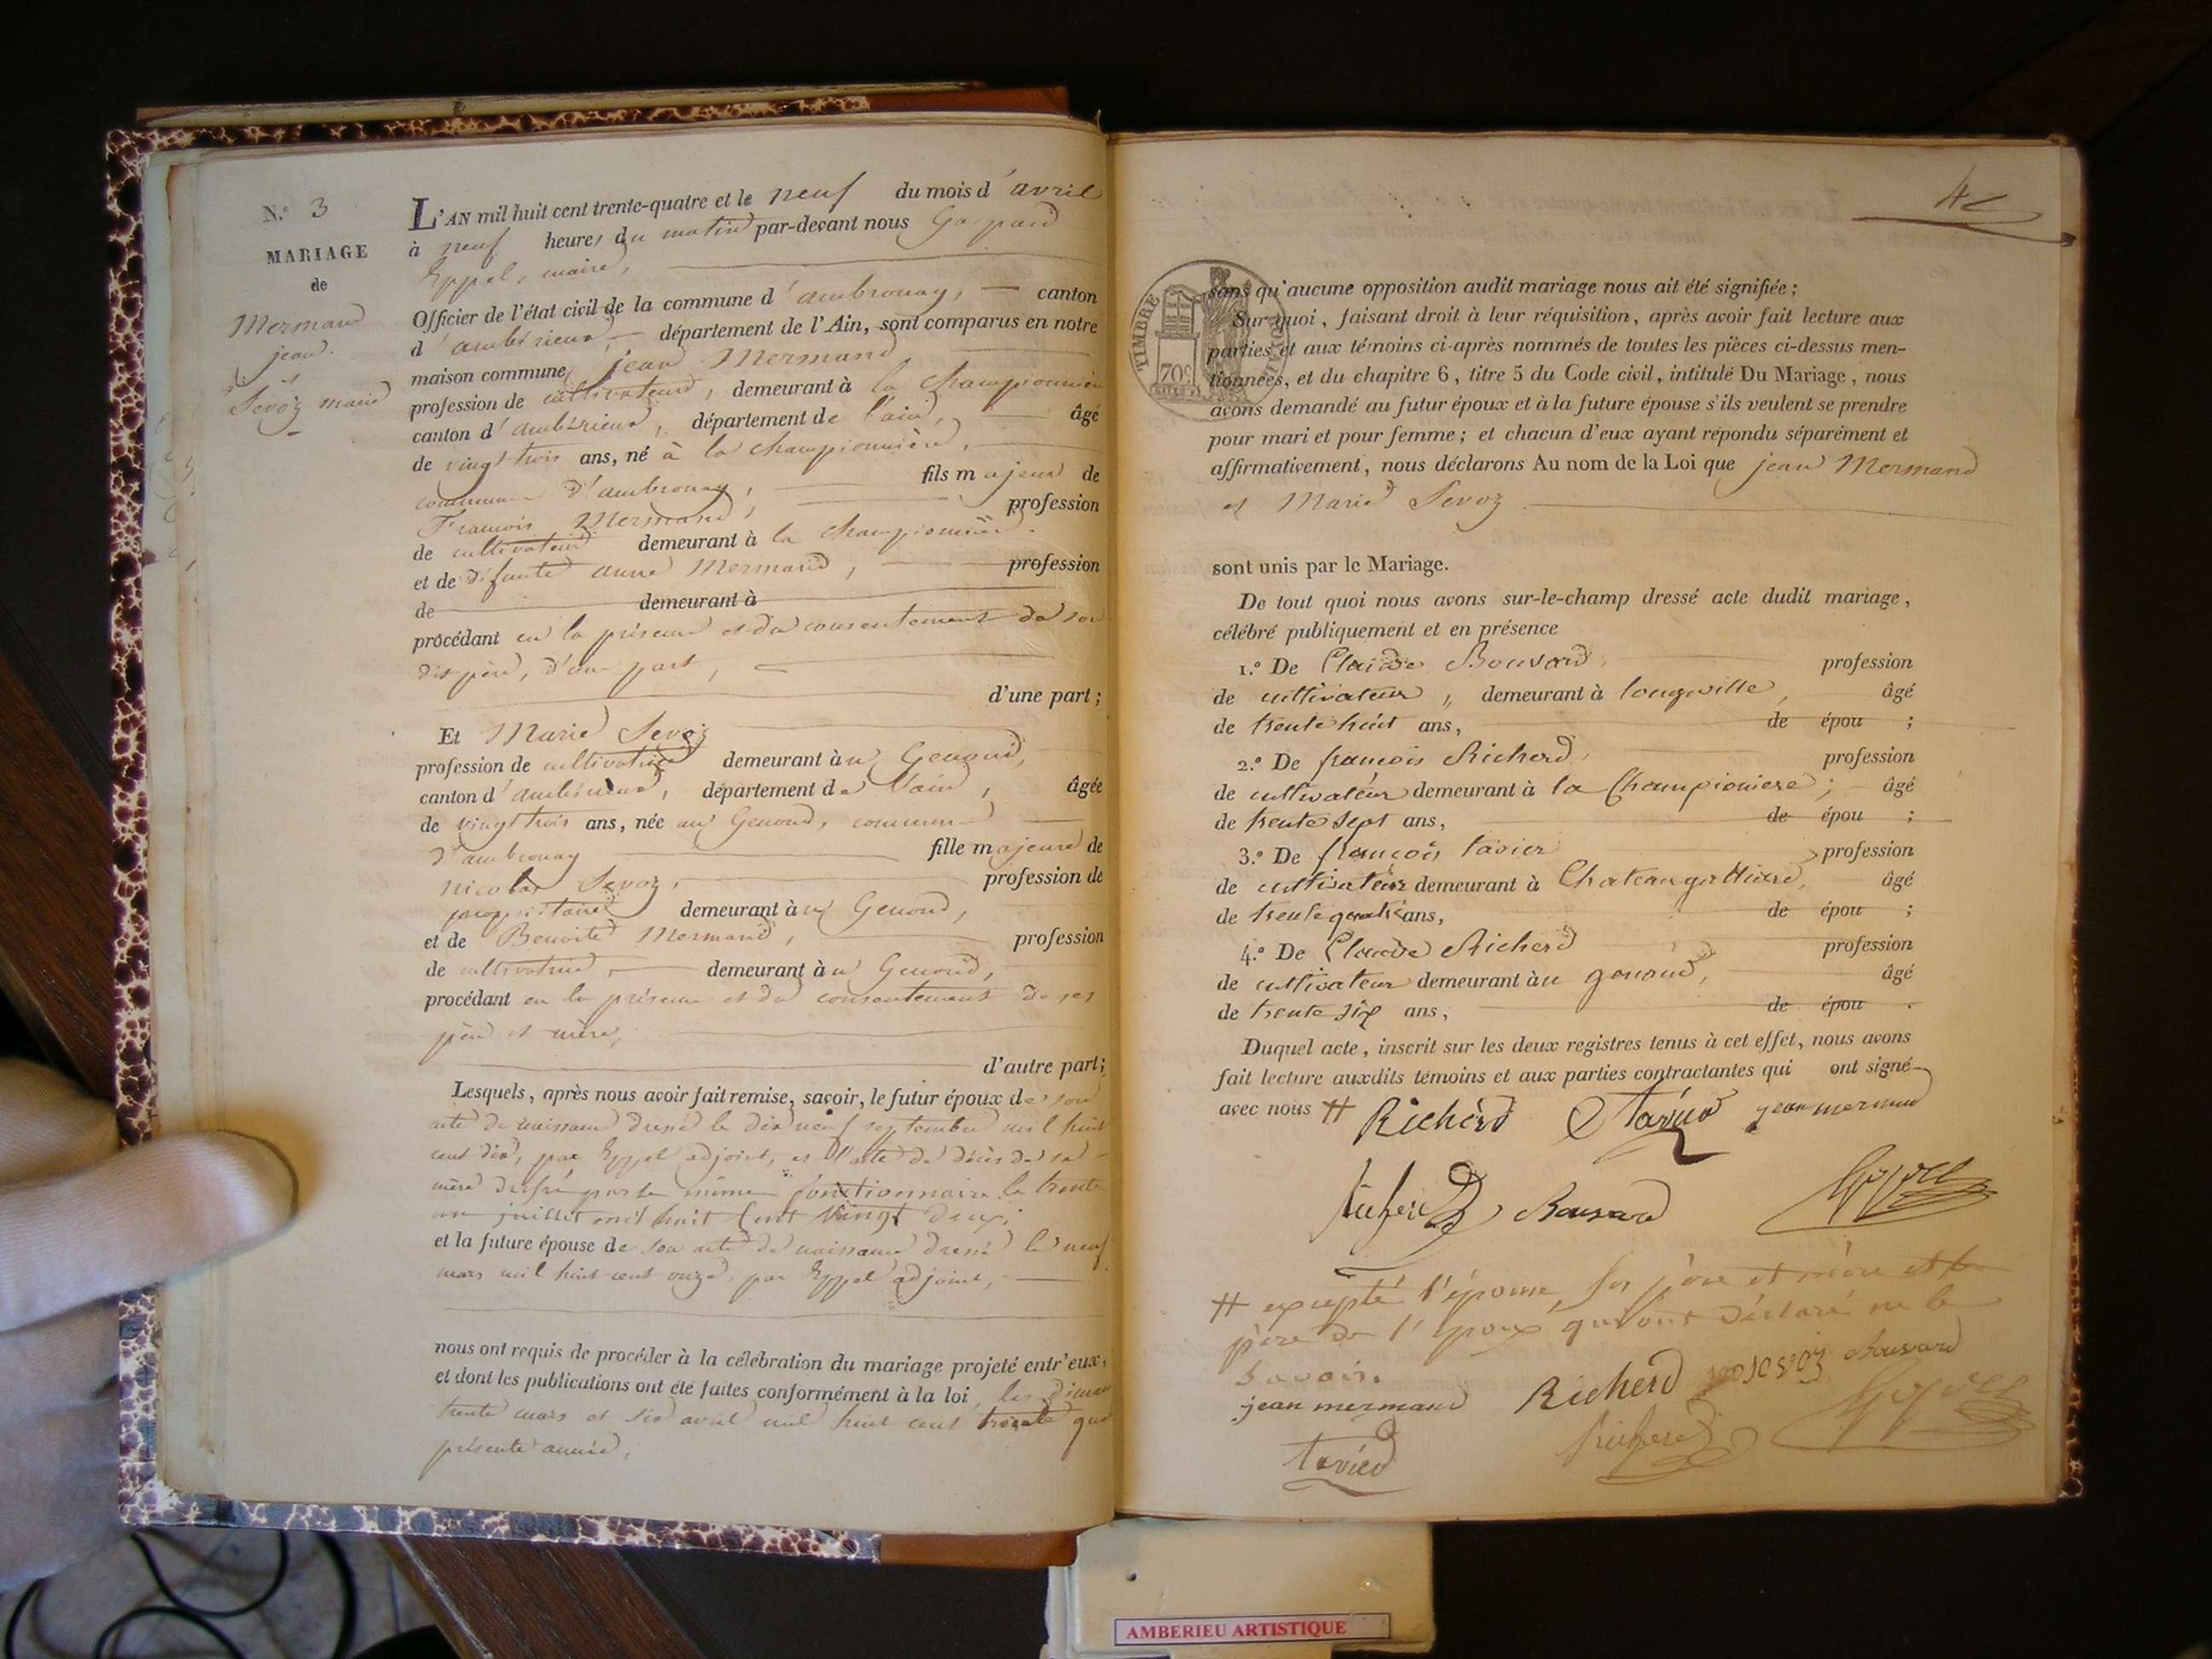 N.º 3
MARIAGE
de
Mermand
jean
et
Sevoz marie
L'AN mil huit cent trente-quatre et le neuf du mois d'avril
à neuf heures du matin par-devant nous Gaspard
Eppel, maire,
Officier de l'état civil de la commune d'ambronay, canton
d'ambérieux, département de l'Ain, sont comparus en notre
maison commune, jean Mermand,
profession de cultivateur, demeurant à la Championnière
canton d'ambérieux, département de l'ain, âgé
de vingt trois ans, né à la championnière,
commune d'ambronay, fils majeur de
François Mermand, profession
de cultivateur demeurant à la championnière.
et de défunte anne Mermand, profession
de demeurant à
procédant en la présence et du consentement de son
dit père, d'une part,
d'une part ;
Et Marie Sevoz
profession de cultivatrice demeurant àu Genoud,
canton d'ambérieux, département de l'ain, âgée
de vingt trois ans, née au Genoud, commune
d'ambronay fille majeure de
nicolas Sevoz, profession de
propriétaire demeurant àu Genoud,
et de Benoite Mermand, profession
de cultivatrice, demeurant àu Genoud,
procédant en la présence et du consentement de ses
père et mère,
d'autre part ;
Lesquels, après nous avoir fait remise, savoir, le futur époux de son
acte de naissance dressé le dix neuf septembre mil huit
cent dix, par Eppel adjoint, et l'acte de décès de sa
mère dressé par le même fonctionnaire le trente
un juillet mil huit cent vingt deux ;
et la future épouse de son acte de naissance dressé le neuf
mars mil huit cent onze, par Eppel adjoint,
nous ont requis de procéder à la célébration du mariage projeté entr'eux,
et dont les publications ont été faites conformément à la loi, les
trente mars et six avril mil huit cent trente
présente année,
4
TIMBRE
70c
sans qu'aucune opposition audit mariage nous ait été signifiée ;
Sur quoi, faisant droit à leur réquisition, après avoir fait lecture aux
parties et aux témoins ci-après nommés de toutes les pièces ci-dessus men-
tionnées, et du chapitre 6, titre 5 du Code civil, intitulé Du Mariage, nous
avons demandé au futur époux et à la future épouse s'ils veulent se prendre
pour mari et pour femme ; et chacun d'eux ayant répondu séparément et
affirmativement, nous déclarons Au nom de la Loi que jean Mermand
et Marie Sevoz
sont unis par le Mariage.
De tout quoi nous avons sur-le-champ dressé acte dudit mariage,
célébré publiquement et en présence
1.º De Claude Bouvard, profession
de cultivateur, demeurant à longeville, âgé
de trente huit ans, de épou ;
2.º De françois Richerd, profession
de cultivateur demeurant à la Championiere ; âgé
de trente sept ans, de épou ;
3.º De françois tavier profession
de cultivateur demeurant à Chateaugaillard, âgé
de trente quatre ans, de épou ;
4.º De Claude Richerd profession
de cultivateur demeurant àu genoud, âgé
de trente six ans, de épou .
Duquel acte, inscrit sur les deux registres tenus à cet effet, nous avons
fait lecture auxdits témoins et aux parties contractantes qui ont signé
avec nous # Richerd tavier jean mermand
Richerd Bouvard Eppel
# excepté l'épouse, ses père et mère et le
père de l'époux qui ont déclaré ne le
savoir.
jean mermand Richerd Bouvard
tavier Richerd Eppel
AMBERIEU ARTISTIQUE